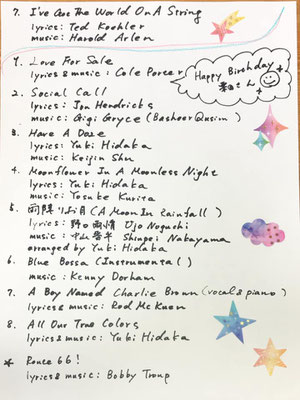 7. I've Got The World On A String
lyrics: Ted Koehler
music: Harold Arlen
1. Love For Sale
lyrics & music: Cole Porter
Happy Birthday
さん
2. Social Call
lyrics: Jon Hendricks
music: Gigi Gryce (Basheer Qusim)
3. Have A Daze
lyrics: Yuki Hidaka
music: Keijin Shu
4. Moonflower In A Moonless Night
lyrics: Yuki Hidaka
music: Yosuke Kurita
5. 雨降りお月 (A Moon In Rainfall)
lyrics: 野口雨情 Ujo Noguchi
music: 中山晋平 Shinpei Nakayama
arranged by Yuki Hidaka
6. Blue Bossa (Instrumental)
music: Kenny Dorham
7. A Boy Named Charlie Brown (vocal & piano)
lyrics & music: Rod McKuen
8. All Our True Colors
lyrics & music: Yuki Hidaka
* Route 66!
lyrics & music: Bobby Troup